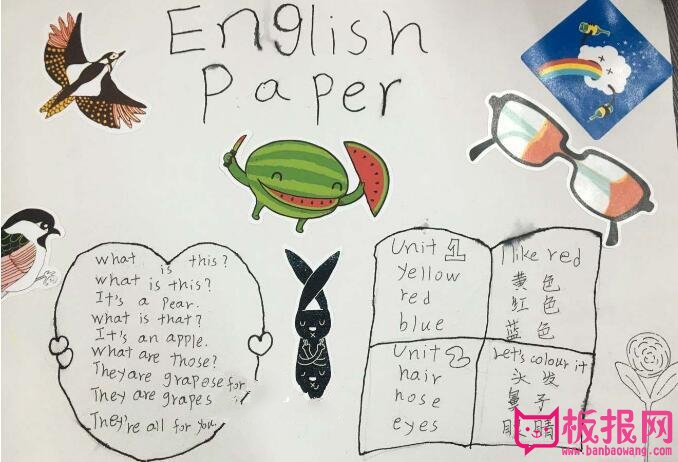 English
Paper
what is this?
what is this?
It's a pear.
what is that?
It's an apple.
what are those?
They are grapese for
They are grapes
They're all for you.
Unit 1
yellow
red
blue
I like red
黄色
红色
蓝色
Unit 2
hair
nose
eyes
Let's colour it
头发
鼻子
眼睛
板报网
www.banbaowang.com